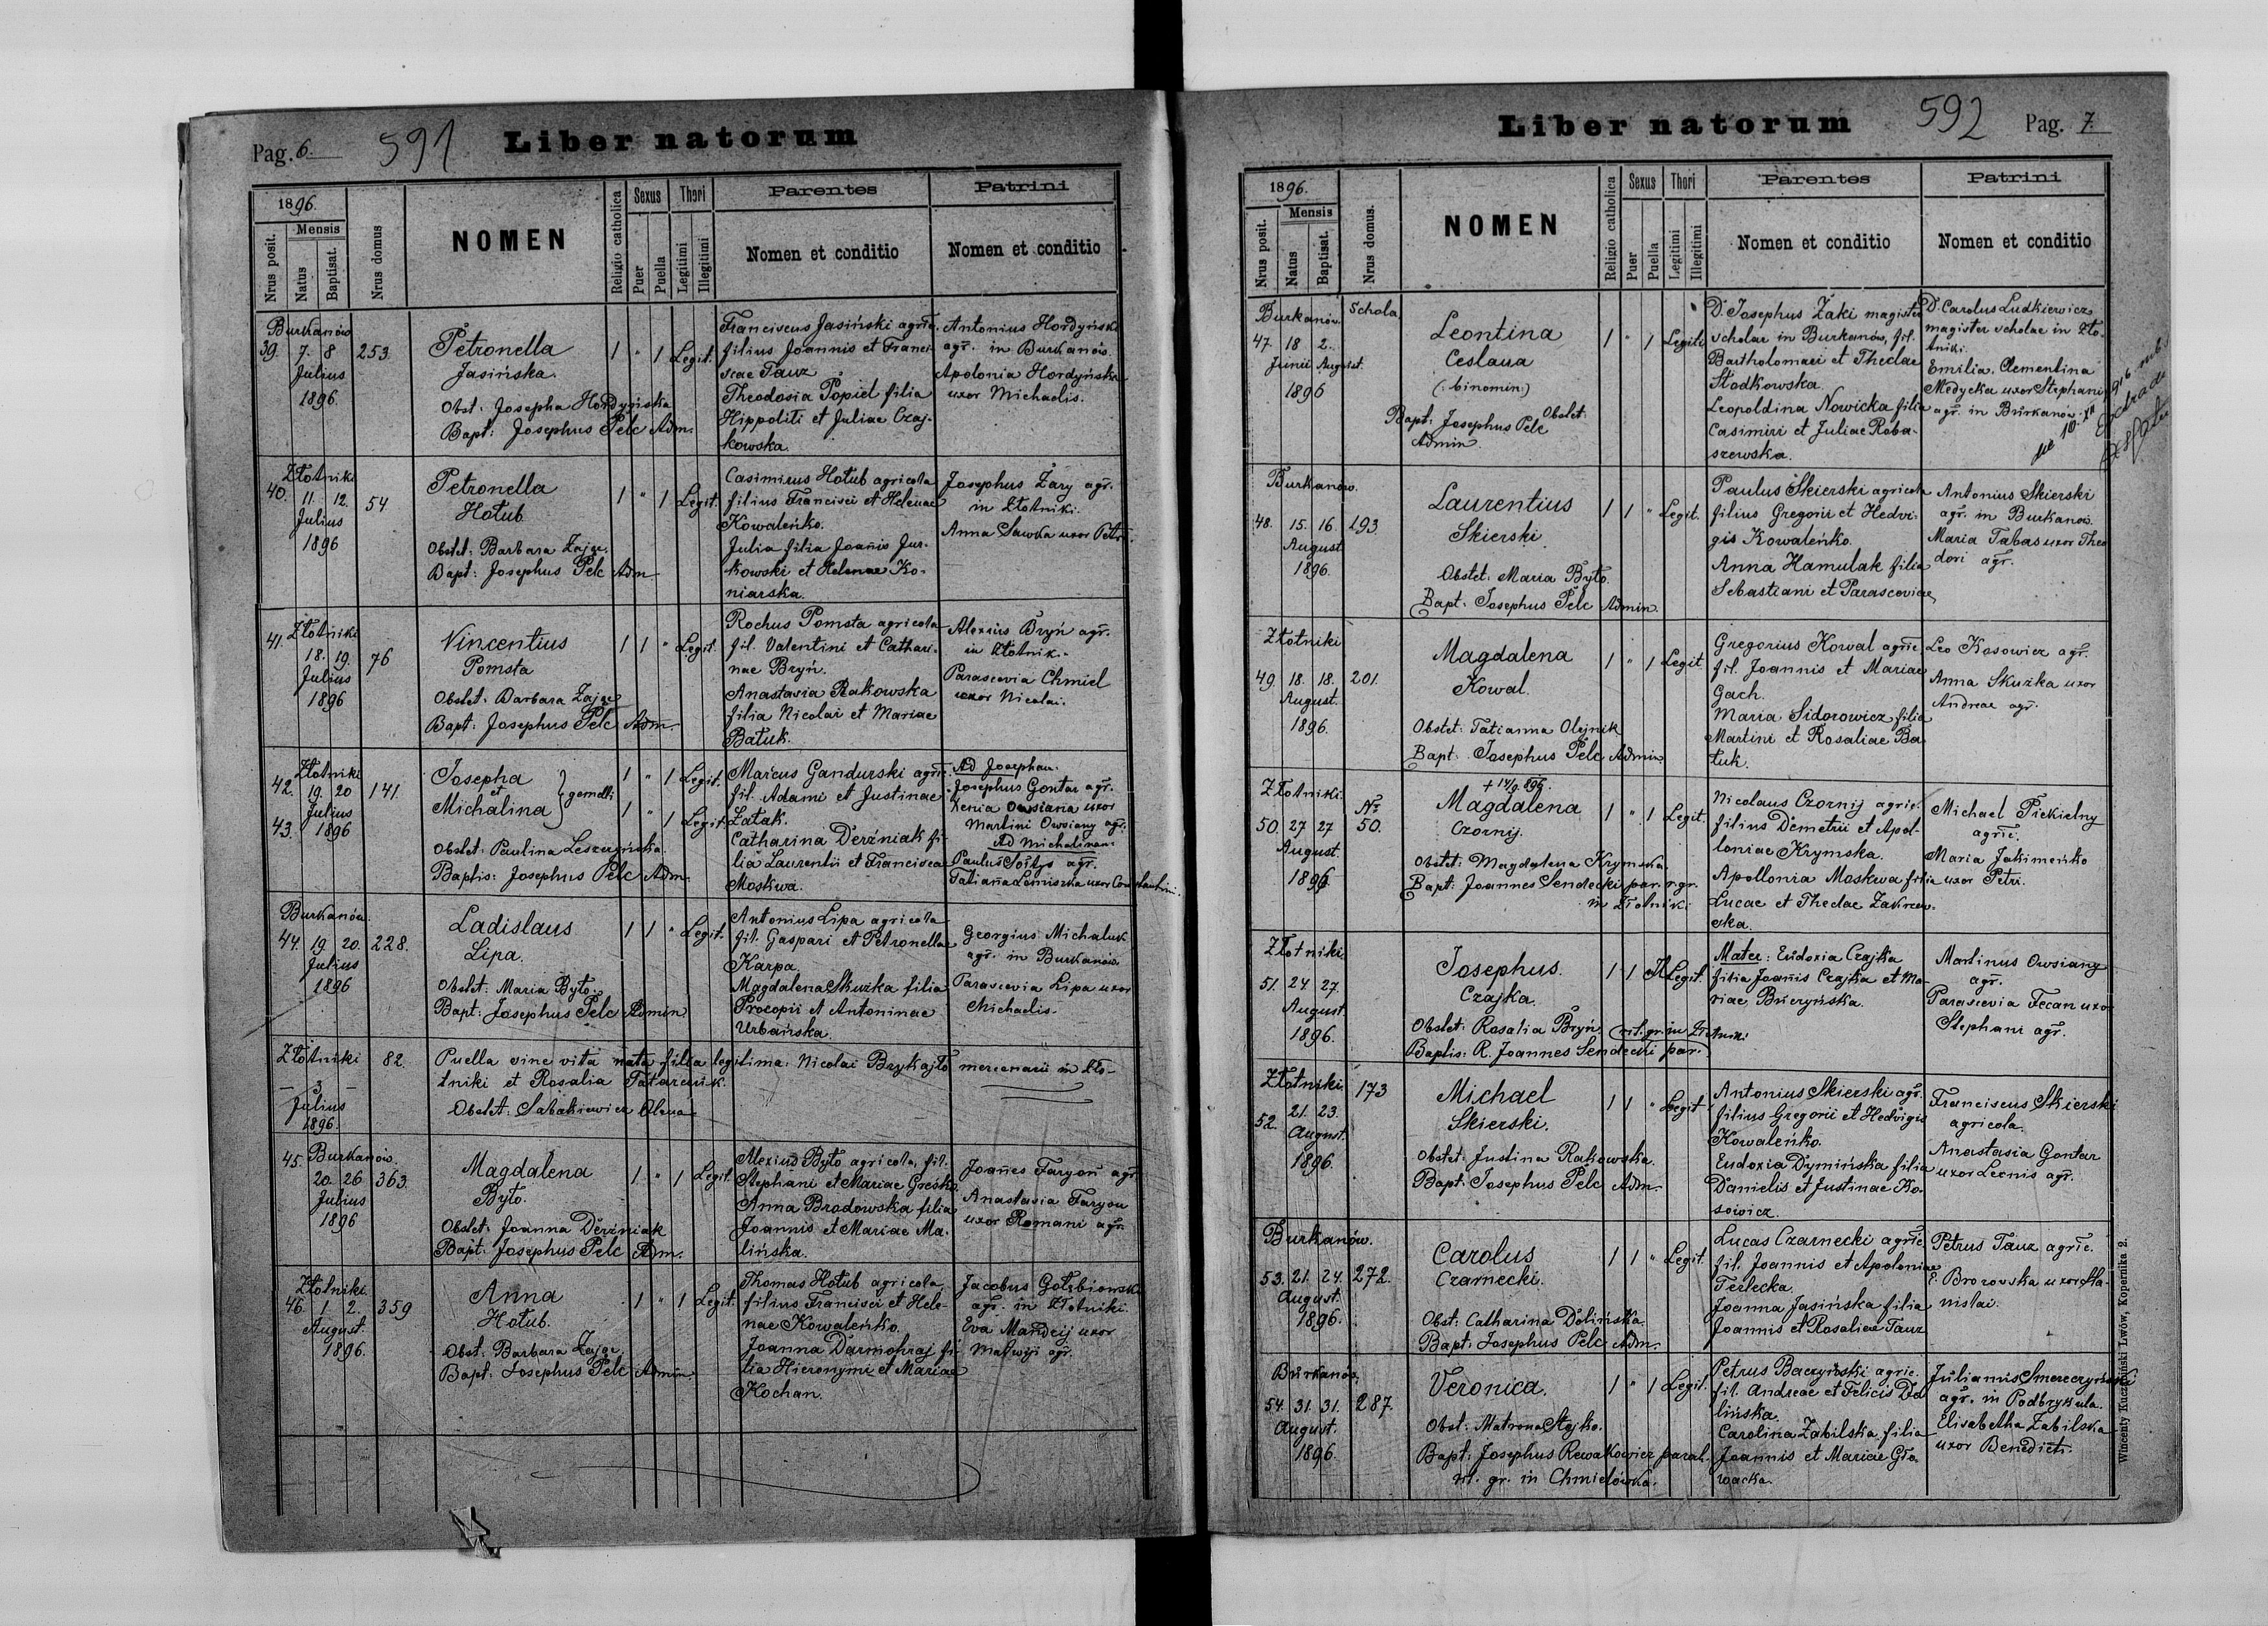 Pag. 6.
591
Liber natorum
1896.
Nrus posit.
Mensis
Natus
Baptisat.
Nrus domus
NOMEN
Religio catholica
Sexus
Puer
Puella
Thori
Legitimi
Illegitimi
Parentes
Nomen et conditio
Patrini
Nomen et conditio
Burkanów
39. 7. 8 253.
Julius
1896.
Petronella
Jasińska.
Obst: Josepha Hordyńska
Bapt: Josephus Pelc Adm.
1 " 1 Legit.
Franciscus Jasiński agric.
filius Joannis et Franci-
scae Tauz
Theodosia Popiel filia
Hippoliti et Juliae Czaj-
kowska.
Antonius Hordyński
agr. in Burkanów.
Apolonia Hordyńska
uxor Michaelis.
Złotniki
40. 11. 12. 54
Julius
1896
Petronella
Hołub
Obstet: Barbara Zając.
Bapt: Josephus Pelc Adm
1 " 1 Legit.
Casimirus Hołub agricola
filius Francisci et Helenae
Kowaleńko.
Julia filia Joañis Jur-
kowski et Helenae Ko-
niarska.
Josephus Żary agr.
in Złotniki.
Anna Sawka uxor Petri.
Złotniki
41. 18. 19. 76
Julius
1896
Vincentius
Pomsta
Obstet: Barbara Zając
Bapt: Josephus Pelc Adm.
1 1 " Legit.
Rochus Pomsta agricola
fil. Valentini et Cathari-
nae Bryń.
Anastasia Rakowska
filia Nicolai et Mariae
Bałuk.
Alexius Bryń agr.
in Złotnik.
Parascevia Chmiel
uxor Nicolai.
Złotniki
42. 19. 20 141
Julius
43. 1896
Josepha
et
Michalina
gemelli
Obstet: Paulina Leszczyńska.
Baptis: Josephus Pelc Adm.
1 " 1 Legit.
1 " 1 Legit.
Marcus Gandurski agric.
fil. Adami et Justinae
Łatak.
Catharina Derżniak fi-
lia Laurentii et Francisca
Moskwa.
Ad Josepham.
Josephus Gontar agr.
Xenia Owsiana uxor
Martini Owsiany agr.
Ad Michalinam.
Paulus Sołtys agr.
Tatiaña Lemiszka uxor Constantini.
Burkanów.
44. 19 20. 228.
Julius
1896
Ladislaus
Lipa.
Obstet: Maria Byto.
Bapt: Josephus Pelc Admin
1 1 " Legit.
Antonius Lipa agricola
fil. Gaspari et Petronella
Karpa.
Magdalena Skuzka filia
Procopii et Antoninae
Urbańska.
Georgius Michaluk
agr. in Burkanów
Parascevia Lipa uxor
Michaelis.
Złotniki 82.
— 3 —
Julius
1896.
Puella sine vita nata filia legitima: Nicolai Brykajło mercenarii in Zło-
tniki et Rosalia Tatarcuk.
Obstet: Sabatiewicz Olena
Burkanów.
45. 20. 26. 363.
Julius
1896
Magdalena
Byto.
Obstet: Joanna Derżniak
Bapt: Josephus Pelc Adm.
1 " 1 Legit.
Alexius Byto agricola, fil.
Stephani et Mariae Gresko.
Anna Brodowska filia
Joannis et Mariae Ma-
lińska.
Joañes Faryon agr.
Anastasia Faryon
uxor Romani agr.
Złotniki.
46. 1 2. 359
August.
1896.
Anna
Hołub.
Obst: Barbara Zając.
Bapt: Josephus Pelc Admin.
1 " 1 Legit.
Thomas Hołub agricola,
filius Francisci et Hele-
nae Kowaleńko.
Joanna Darmohraj fi-
lia Hieronymi et Mariae
Kochan.
Jacobus Gołębiowski
agr. in Złotniki.
Eva Mandzij uxor
Matwiji agr.
Liber natorum
592
Pag. 7.
1896.
Nrus posit.
Mensis
Natus
Baptisat.
Nrus domus.
NOMEN
Religio catholica
Sexus
Puer
Puella
Thori
Legitimi
Illegitimi
Parentes
Nomen et conditio
Patrini
Nomen et conditio
Burkanów Schola
47. 18 2.
Junii August.
1896
Leontina
Ceslaua
(: binomin:)
Obstet.
Bapt: Josephus Pelc
Admin.
1 " 1 Legiti
D. Josephus Żaki magister
scholae in Burkanów, fil.
Bartholomaei et Theclae
Słodkowska.
Leopoldina Nowicka filia
Casimiri et Juliae Raba-
szewska.
D. Carolus Ludkiewicz
magister scholae in Zło-
tniki.
Emilia Clementina
Medycka uxor Stephani
agr. in Burkanów.
Burkanów.
48. 15. 16. 293.
August
1896.
Laurentius
Skierski
Obstet: Maria Byto.
Bapt: Josephus Pelc Admin.
1 1 " Legit.
Paulus Skierski agricola
filius Gregorii et Hedvi-
gis Kowaleńko.
Anna Hamulak filia
Sebastiani et Parasceviae
Antonius Skierski
agr. in Burkanów.
Maria Tabas uxor Theo
dori agr.
Złotniki
49. 18. 18. 201.
August.
1896.
Magdalena
Kowal.
Obstet: Tatianna Olejnik
Bapt: Josephus Pelc Admin
1 " 1 Legit
Gregorius Kowal agric.
fil. Joannis et Mariae
Gach.
Maria Sidorowicz filia
Martini et Rosaliae Ba
łuk.
Leo Kosowicz agr.
Anna Skuzka uxor
Andreae agr.
Złotniki.
50. 27 27 Nr. 50.
August.
1896.
+ 14/9 896.
Magdalena
Czornij.
Obstet: Magdalena Krymska.
Bapt: Joannes Sendecki par. r. gr.
in Złotniki
1 " 1 Legit.
Nicolaus Czornij agric.
filius Demetrii et Apol-
loniae Krymska.
Apollonia Moskwa filia
Lucae et Theclae Zakrzew-
ska.
Michael Piekielny
agric.
Maria Jakimeńko
uxor Petri.
Złotniki
51. 24 27.
August.
1896.
Josephus.
Czajka.
Obstet: Rosalia Bryń. rit. gr. in Złotniki
Baptis: R. Joannes Sendecki par.
1 1 Il Legit.
Mater: Eudoxia Czajka
filia Joañis Czajka et Ma-
riae Buczyńska.
Martinus Owsiany
agr.
Parascevia Fecan uxor
Stephani agr.
Złotniki. 173
52. 21. 23.
August.
1896.
Michael
Skierski.
Obstet: Justina Rakowska.
Bapt: Josephus Pelc Adm.
1 1 " Legit
Antonius Skierski agr.
filius Gregorii et Hedvigis
Kowaleńko.
Eudoxia Dymińska filia
Danielis et Justinae Ko-
sowicz.
Franciscus Skierski
agricola.
Anastasia Gontar
uxor Leonis agr.
Burkanów.
53. 21. 24. 272.
August.
1896.
Carolus
Czarnecki.
Obst: Catharina Dolińska.
Bapt: Josephus Pelc Adm.
1 1 " Legit.
Lucas Czarnecki agric.
fil. Joannis et Apoloniae
Terlecka.
Joanna Jasińska filia
Joannis et Rosaliae Tauz
Petrus Tauz agric.
E. Brozowska uxor Sta-
nislai.
Burkanów.
54. 31. 31. 287.
August.
1896.
Veronica.
Obst: Matrona Stojko.
Bapt: Josephus Rewakowicz paroch.
rit. gr. in Chmielówka.
1 " 1 Legit.
Petrus Baczyński agric.
fil. Andreae et Felicis Do
lińska.
Carolina Zabilska filia
Joannis et Mariae Gło-
wacka.
Julianus Smereczyński
agr. in Podbrykula.
Elisabetha Zabilska
uxor Benedicti.
Wincenty Kuczabiński Lwów, Kopernika 2.